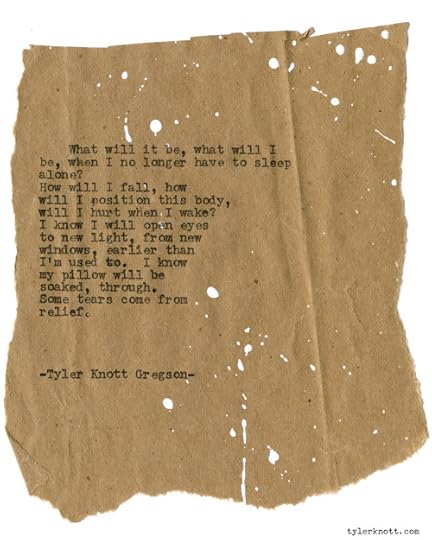 What will it be, what will I
be, when I no longer have to sleep
alone?
How will I fall, how
will I position this body,
will I hurt when I wake?
I know I will open eyes
to new light, from new
windows, earlier than
I'm used to.  I know
my pillow will be
soaked, through.
Some tears come from
relief.
-Tyler Knott Gregson-
tylerknott.com